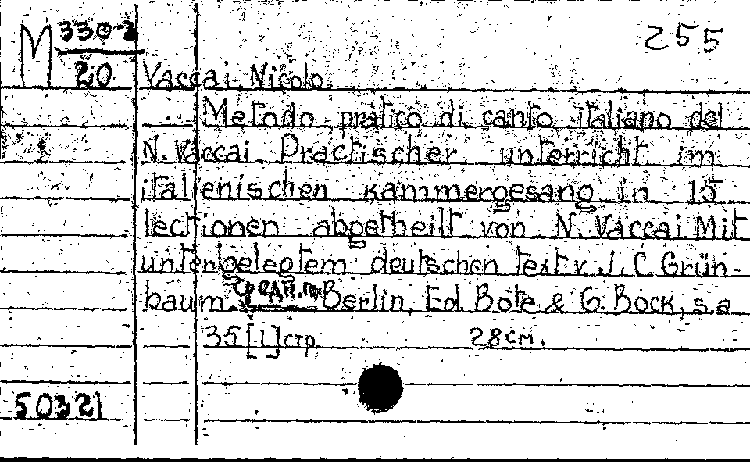 M 330-2 255
20 Vaccai, Nicolo
Metodo pratico di canto italiano del
N. Vaccai. Practischer unterricht im
italienischen kammergesang in 15
lectionen abgetheilt von N. Vaccai Mit
untenbelegtem deutschen text v. J. C. Grün-
baum. Berlin, Ed. Bote & G. Bock, s.a.
35 [1] стр. 28 см.
50321